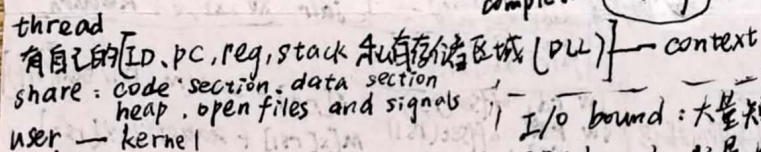 thread
有自己的[ID、PC, reg, stack 私有存储区域(DLL)]—context
share: code section、data section
heap、open files and signals
I/O bound:大量
user — kernel